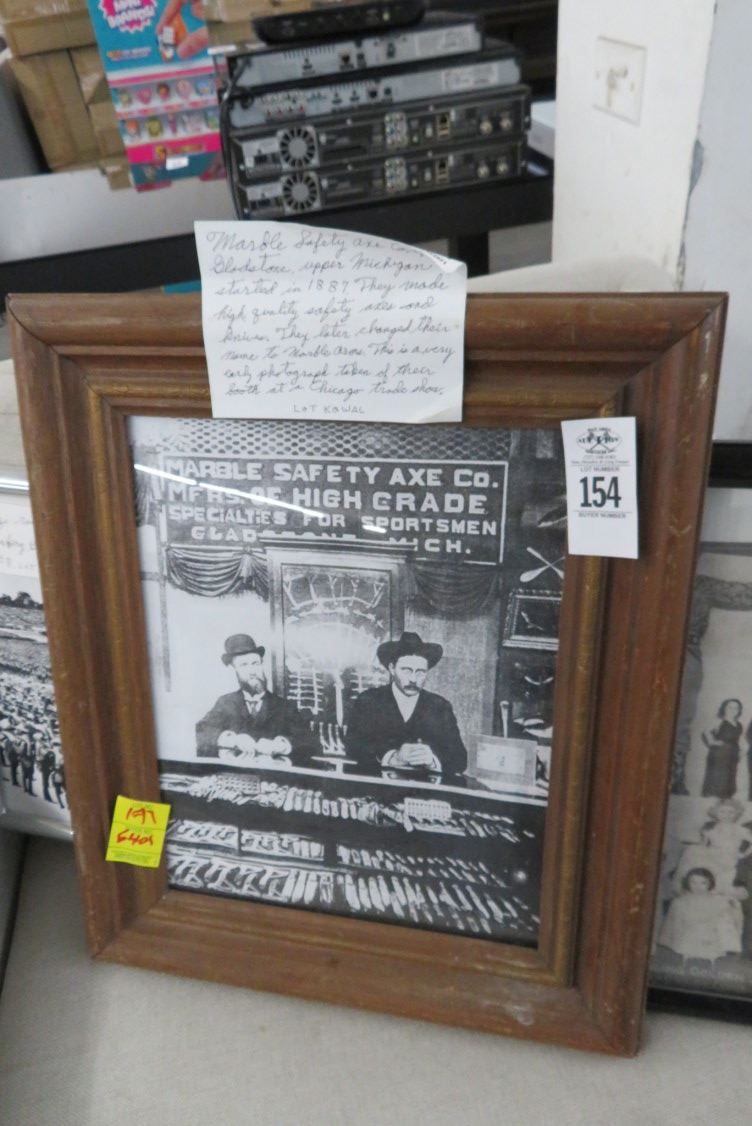 Marble Safety axe
Gladstone, upper Michigan
started in 1887 They made
high quality safety axes and
knives. They later changed their
name to Marble Arms. This is a very
early photograph taken of their
booth at a Chicago trade show.
LOT KOWAL
LOT NUMBER
154
BUYER NUMBER
MARBLE SAFETY AXE CO.
MFRS OF HIGH GRADE
SPECIALTIES FOR SPORTSMEN
GLADSTONE MICH.